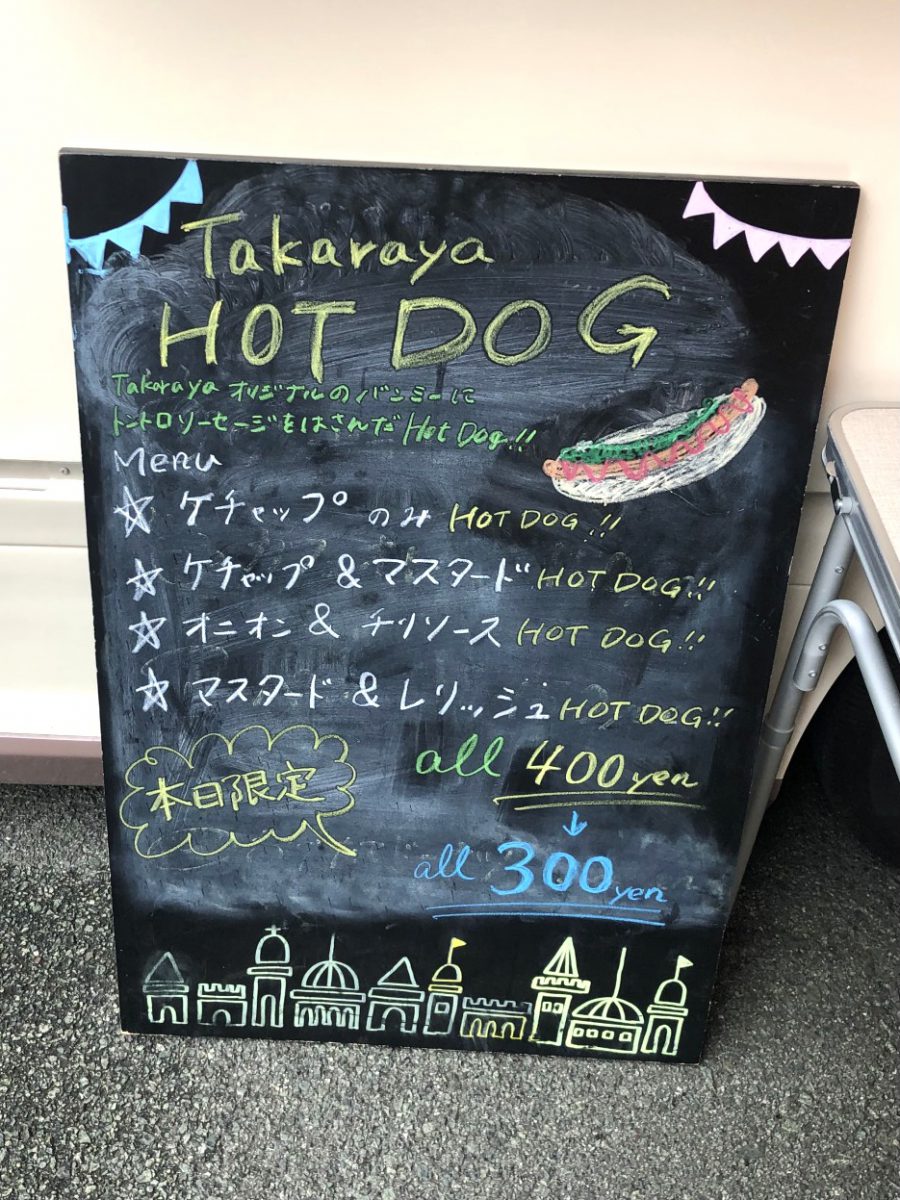 Takaraya
HOT DOG
Takaraya オリジナルのバンミーに
トントロソーセージをはさんだ Hot Dog!!
Menu
☆ ケチャップ のみ HOT DOG!!
☆ ケチャップ & マスタード HOT DOG!!
☆ オニオン & チリソース HOT DOG!!
☆ マスタード & レリッシュ HOT DOG!!
all 400yen
本日限定
↓
all 300yen